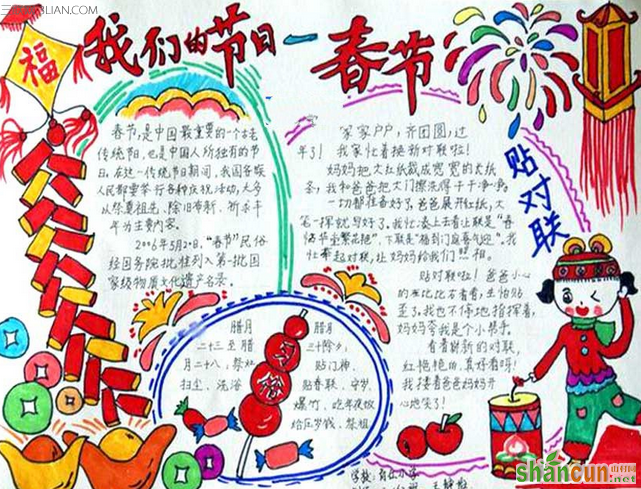 我们的节日—春节
福
春节,是中国最重要的一个古老
传统节,也是中国人所独有的节
日。在这一传统节期间,我国各族
人民都要举行各种庆祝活动,大多
以祭夏祖先、除旧布新、祈求丰
年为主要内容。
2006年5月20日,“春节”民俗
经国务院批准列入第一批国
家级物质文化遗产名录。
家家户户,齐团圆,过
年了!我家忙着换新对联啦!
妈妈把大红纸裁成宽宽的长纸
条,我和爸爸把大门擦洗得干干净净
一切都准备好了,爸爸展开红纸,大
笔一挥就写好了。我忙凑上去看
忙拿起对联,让妈妈给我们照相。
贴对联
贴对联啦!爸爸小心
我也不停地指挥着,
妈妈夸我是个小帮手。
看着崭新的对联,
红艳艳的,真好看呀!
我搂着爸爸妈妈开
心地笑了!
腊月
二十三至腊
月二十八,祭灶
扫尘、洗浴
习俗
腊月
三十除夕,
贴门神、
贴春联、守岁、
爆竹、吃年夜饭
给压岁钱、祭祖
shancun